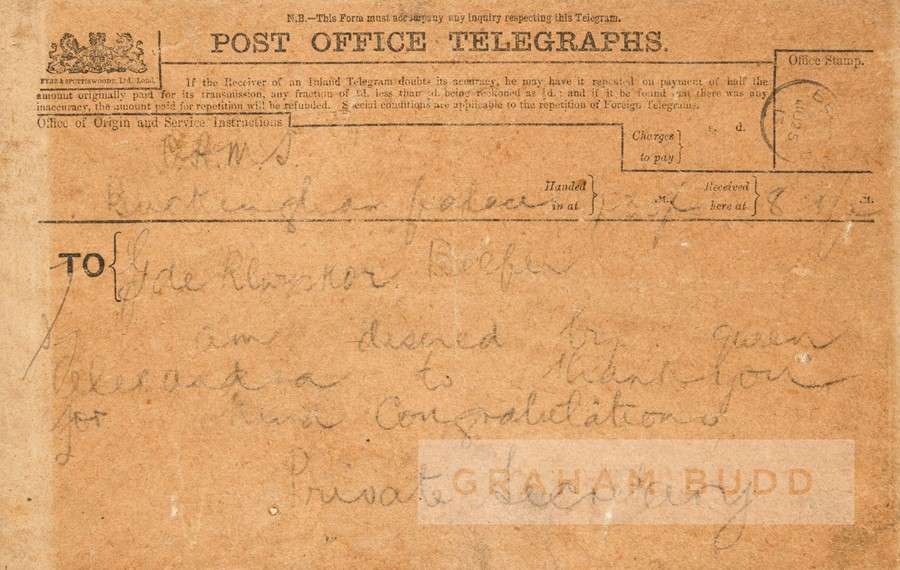 N.B.—This Form must accompany any inquiry respecting this Telegram.
POST OFFICE TELEGRAPHS.
Office Stamp.
If the Receiver of an Inland Telegram doubts its accuracy, he may have it repeated on payment of half the
amount originally paid for its transmission, any fraction of 1d. less than ½d. being reckoned as ½d.; and if it be found that there was any
inaccuracy, the amount paid for repetition will be refunded. Special conditions are applicable to the repetition of Foreign Telegrams.
Office of Origin and Service Instructions
Charges to pay
s. d.
O.H.M.S
Buckingham palace
Handed in at
M.
Received here at
8
M.
TO
G de
am desired by queen
Alexandra to thank you
for kind Congratulations
Private Secretary
GRAHAM BUDD